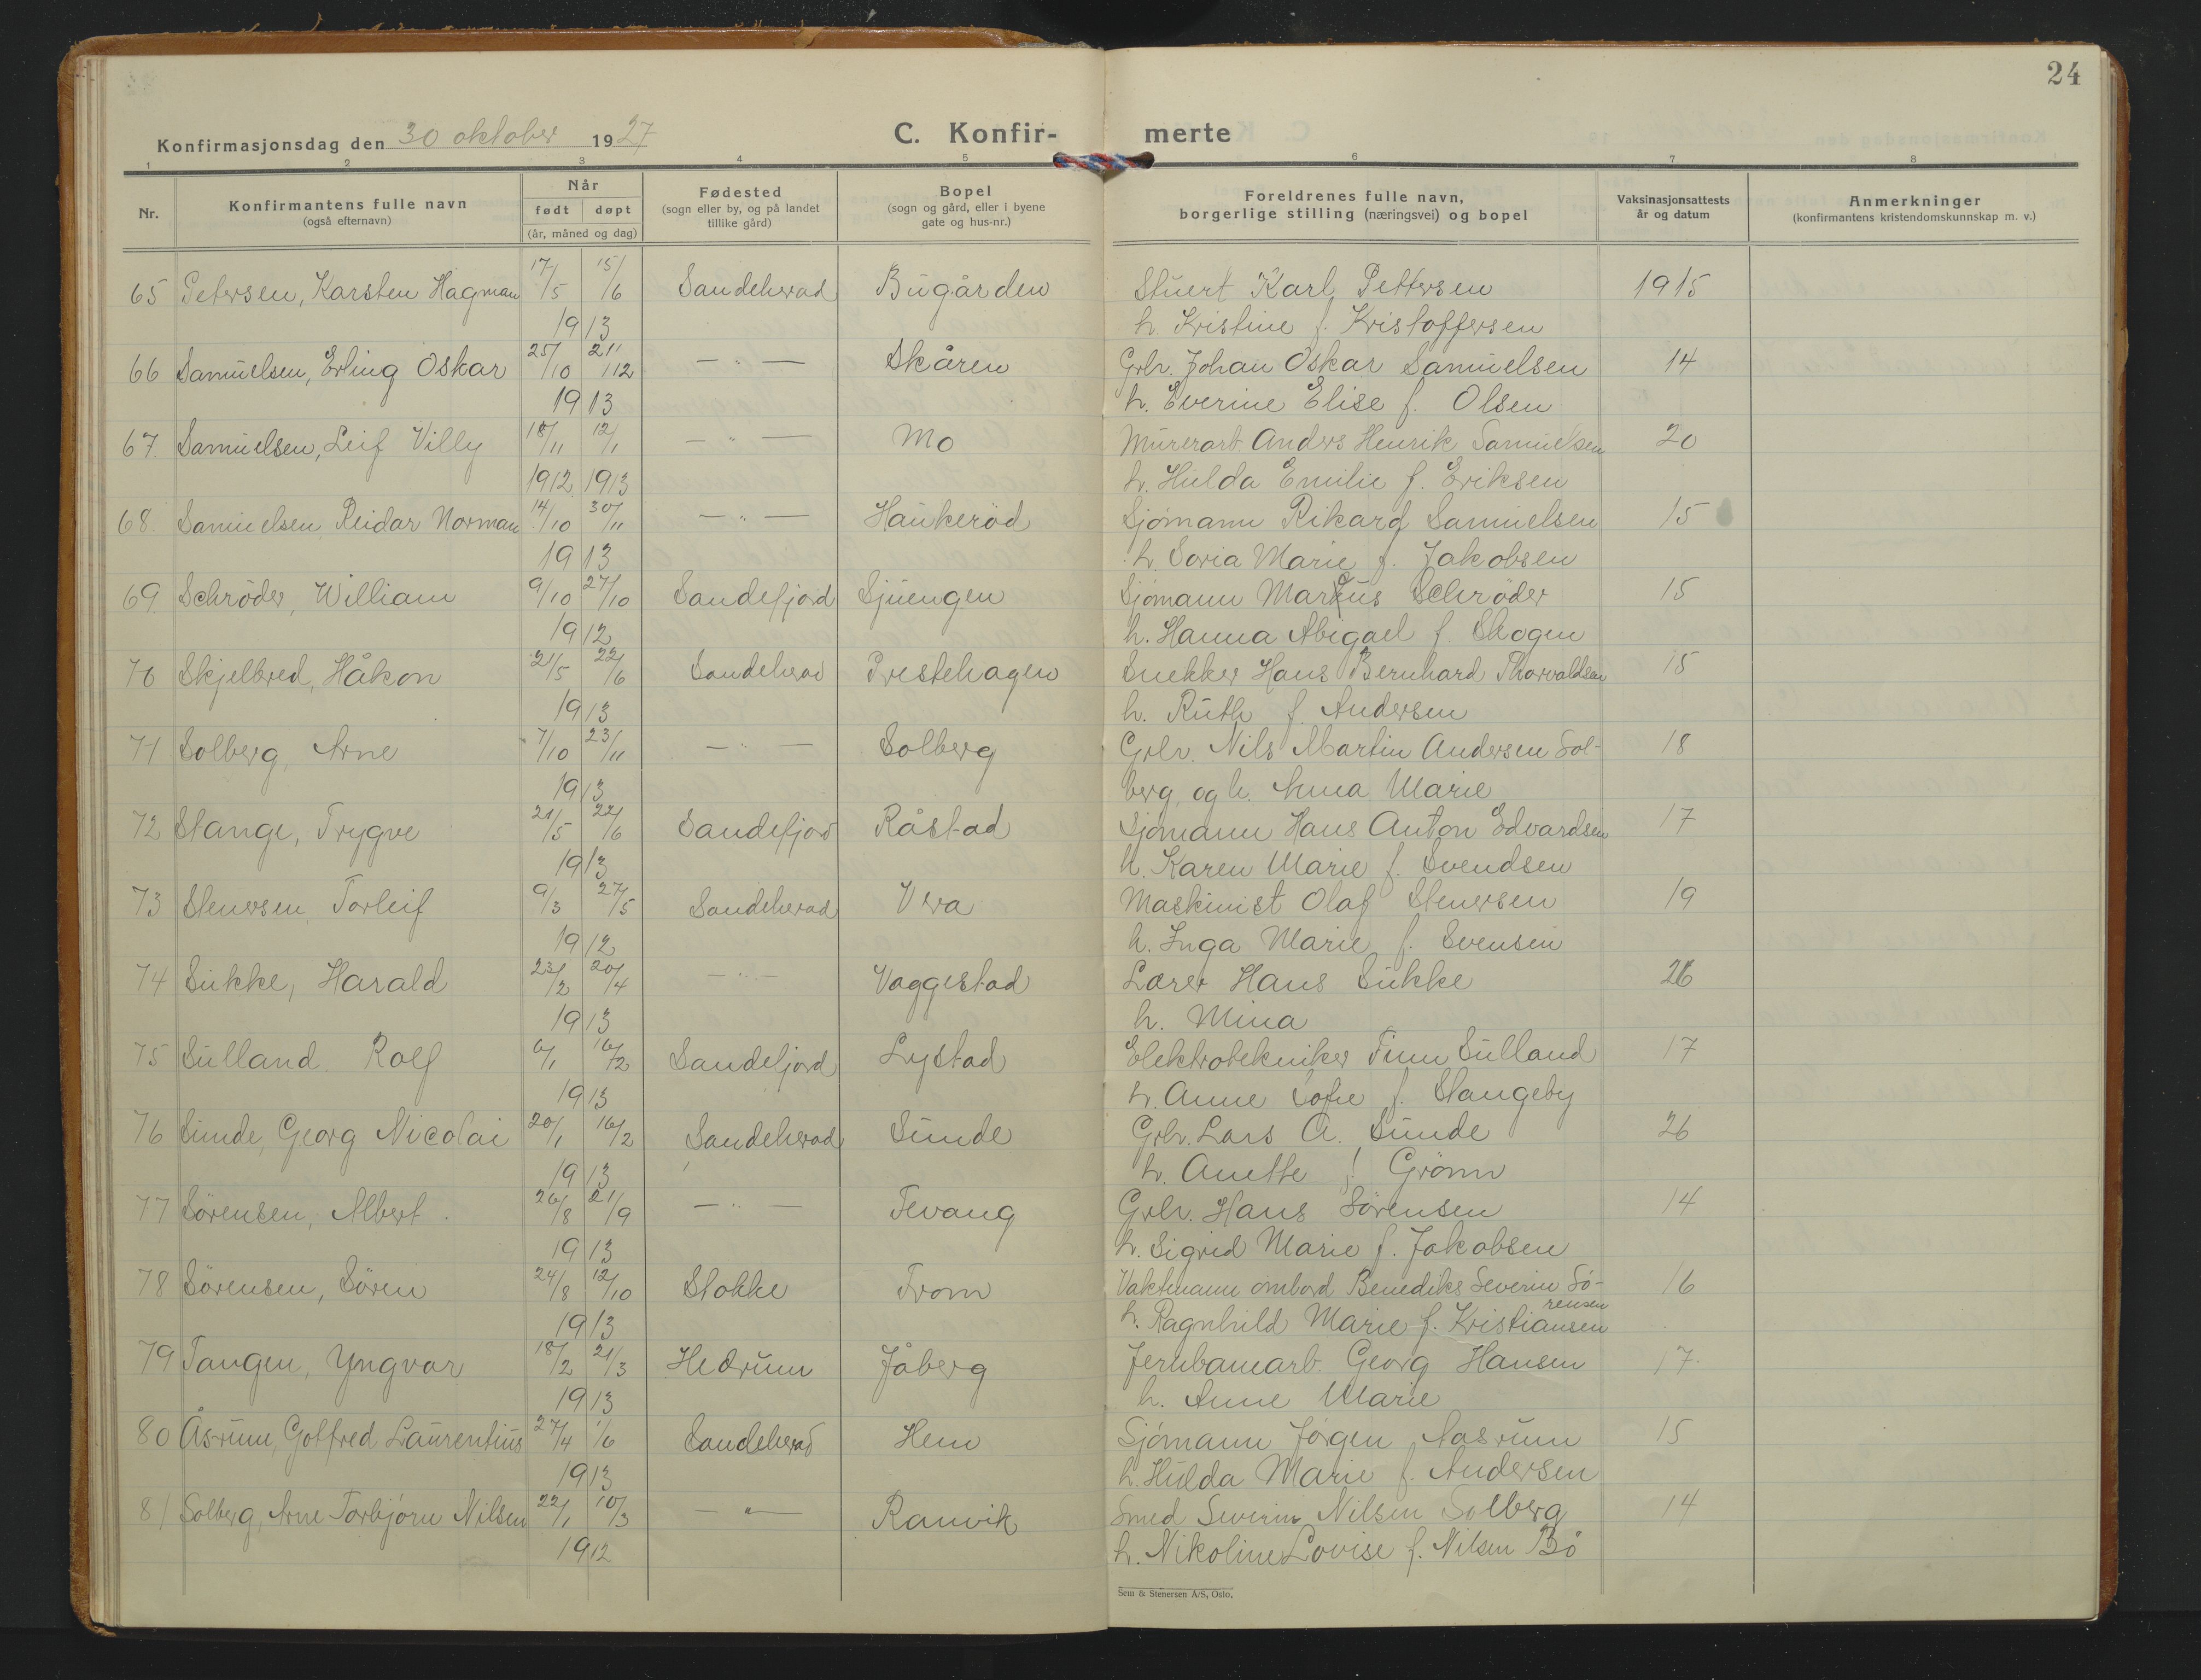 24
Konfirmasjonsdag den 30 oktober 1927
C. Konfir- merte
1 2 3 4 5 6 7 8
Nr.
Konfirmantens fulle navn
(også efternavn)
Når
født døpt
(år, måned og dag)
Fødested
(sogn eller by, og på landet
tillike gård)
Bopel
(sogn og gård, eller i byene
gate og hus-nr.)
Foreldrenes fulle navn,
borgerlige stilling (næringsvei) og bopel
Vaksinasjonsattests
år og datum
Anmerkninger
(konfirmantens kristendomskunnskap m. v.)
65 Petersen, Karsten Hagman 17/5 15/6 Sandeherad Bugården Stuert Karl Pettersen 1915
1913 h. Kristine f. Kristoffersen
66 Samuelsen, Erling Oskar 25/10 21/12 — " — Skåren Grbr. Johan Oskar Samuelsen 14
1913 h. Everine Elise f. Olsen
67. Samuelsen, Leif Villy 18/11 12/1 — " — Mo Murerarb. Anders Henrik Samuelsen 20
1912 1913 h. Hulda Emilie f. Eriksen
68. Samuelsen, Reidar Norman 14/10 30/11 — " — Haukeröd Sjömann Rikard Samuelsen 15
1913 h. Soria Marie f. Jakobsen
69. Schröder, William 9/10 27/10 Sandefjord Sjuengen Sjömann Marcus Schröder 15
1912 h. Hanna Abigael f. Skogen
70 Skjelbred, Håkon 21/5 22/6 Sandeherad Prestehagen Snekker Hans Bernhard Thorvaldsen 15
1913 h. Ruth f. Andersen
71 Solberg, Arne 7/10 23/11 — " — Solberg Grbr. Nils Martin Andersen Sol- 18
1913 berg, og h. Anna Marie
72 Stange, Trygve 21/5 22/6 Sandefjord Råstad Sjömann Hans Anton Edvardsen 17
1913 h. Karen Marie f. Svendsen
73 Stenersen, Torleif 9/3 27/5 Sandeherad Vera Maskinist Olaf Stenersen 19
1912 h. Inga Marie f. Svensen
74 Sukke, Harald 23/2 20/4 — " — Vaggestad Lærer Hans Sukke 26
1913 h. Mina
75 Sulland Rolf 6/1 16/2 Sandefjord Lystad Elektrotekniker Finn Sulland 17
1913 h. Anne Sofie f. Stangeby
76 Sunde, Georg Nicolai 20/1 16/2 Sandeherad Sunde Grbr. Lars A. Sunde 26
1913 h. Anette f Grönn
77 Sörensen, Albert. 26/8 21/9 — " — Tevang Grbr. Hans Sörensen 14
1913 h. Sigrid Marie f. Jakobsen
78 Sörensen, Sören 24/8 12/10 Stokke From Vaktmann ombord Benediks Severin Sö- 16
rensen
1913 h. Ragnhild Marie f. Kristiansen
79 Tangen, Yngvar 18/2 21/3 Hedrum Jåberg Jernbanearb. Georg Hansen 17.
1913 h. Anne Marie
80 Åsrum, Gotfred Laurentius 27/4 1/6 Sandeherad Hem Sjömann Jörgen Aasrum 15
1913 h. Hulda Marie f. Andersen
81 Solberg, Arne Torbjörn Nilsen 22/1 10/3 — " — Ranvik Smed Severin Nilsen Solberg 14
1912 h. Nikoline Lovise f. Nilsen Bö
Sem & Stenersen A/S, Oslo.